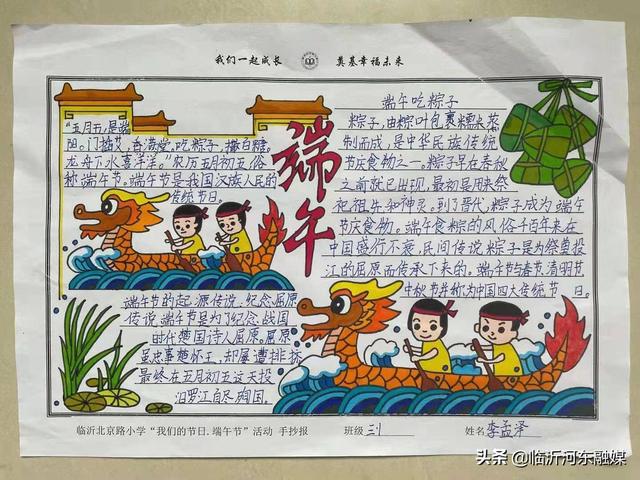 我们一起成长 奠基幸福未来
"五月五,是端
阳。门插艾,香满堂,吃粽子,撒白糖,
龙舟下水喜洋洋。"农历五月初五,俗
称端午节。端午节是我国汉族人民的
传统节日。
端午
端午吃粽子
粽子,由粽叶包裹糯米蒸
制而成,是中华民族传统
节庆食物之一。粽子早在春秋
之前就已出现,最初是用来祭
祀祖先和神灵。到了晋代,粽子成为端午
节庆食物。端午食粽的风俗千百年来在
中国盛行不衰,民间传说粽子是为祭奠投
江的屈原而传承下来的。端午节与春节、清明节、
中秋节并称为中国四大传统节日。
端午节的起源传说,纪念屈原
传说端午节是为了纪念战国
时代楚国诗人屈原。屈原
忠事楚怀王,却屡遭排挤
最终在五月初五这天投
汨罗江自尽殉国。
临沂北京路小学"我们的节日.端午节"活动 手抄报 班级 三1 姓名 李孟泽
头条 @临沂河东融媒